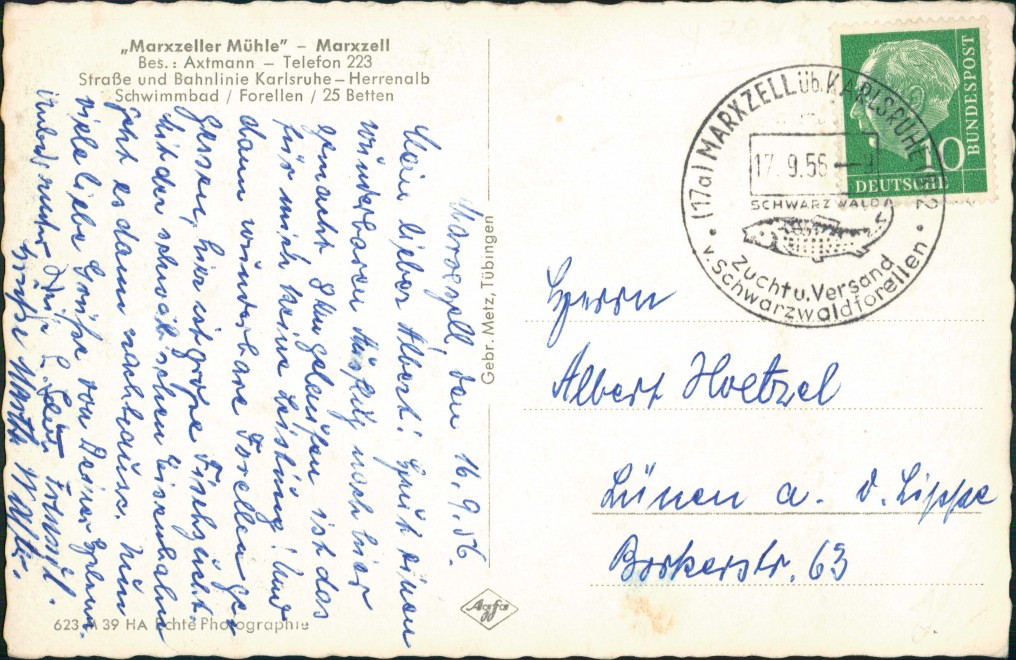 „Marxzeller Mühle” – Marxzell
Bes.: Axtmann – Telefon 223
Straße und Bahnlinie Karlsruhe – Herrenalb
Schwimmbad / Forellen / 25 Betten
Marxzell, den 16.9.56.
Mein lieber Albert! Heut einen
wunderbaren Ausflug nach hier
gemacht. 3 Std gelaufen ist das
für mich keine Leistung? Und
dann wunderbare Forellen ge
gessen, hier ist große Fischzucht.
Mit der schwäbschen Eisenbahn
geht es dann nachhause. Nun
viele liebe Grüße von Deiner
Grüße
623 M 39 HA Echte Photographie
Gebr. Metz, Tübingen
Agfa
(17a) MARXZELL üb. KARLSRUHE 2
17.9.56
SCHWARZWALD
Zucht u. Versand
v. Schwarzwaldforellen
10
DEUTSCHE
BUNDESPOST
Herrn
Albert Hoetzel
Lünen a. d. Lippe
Borkerstr. 63